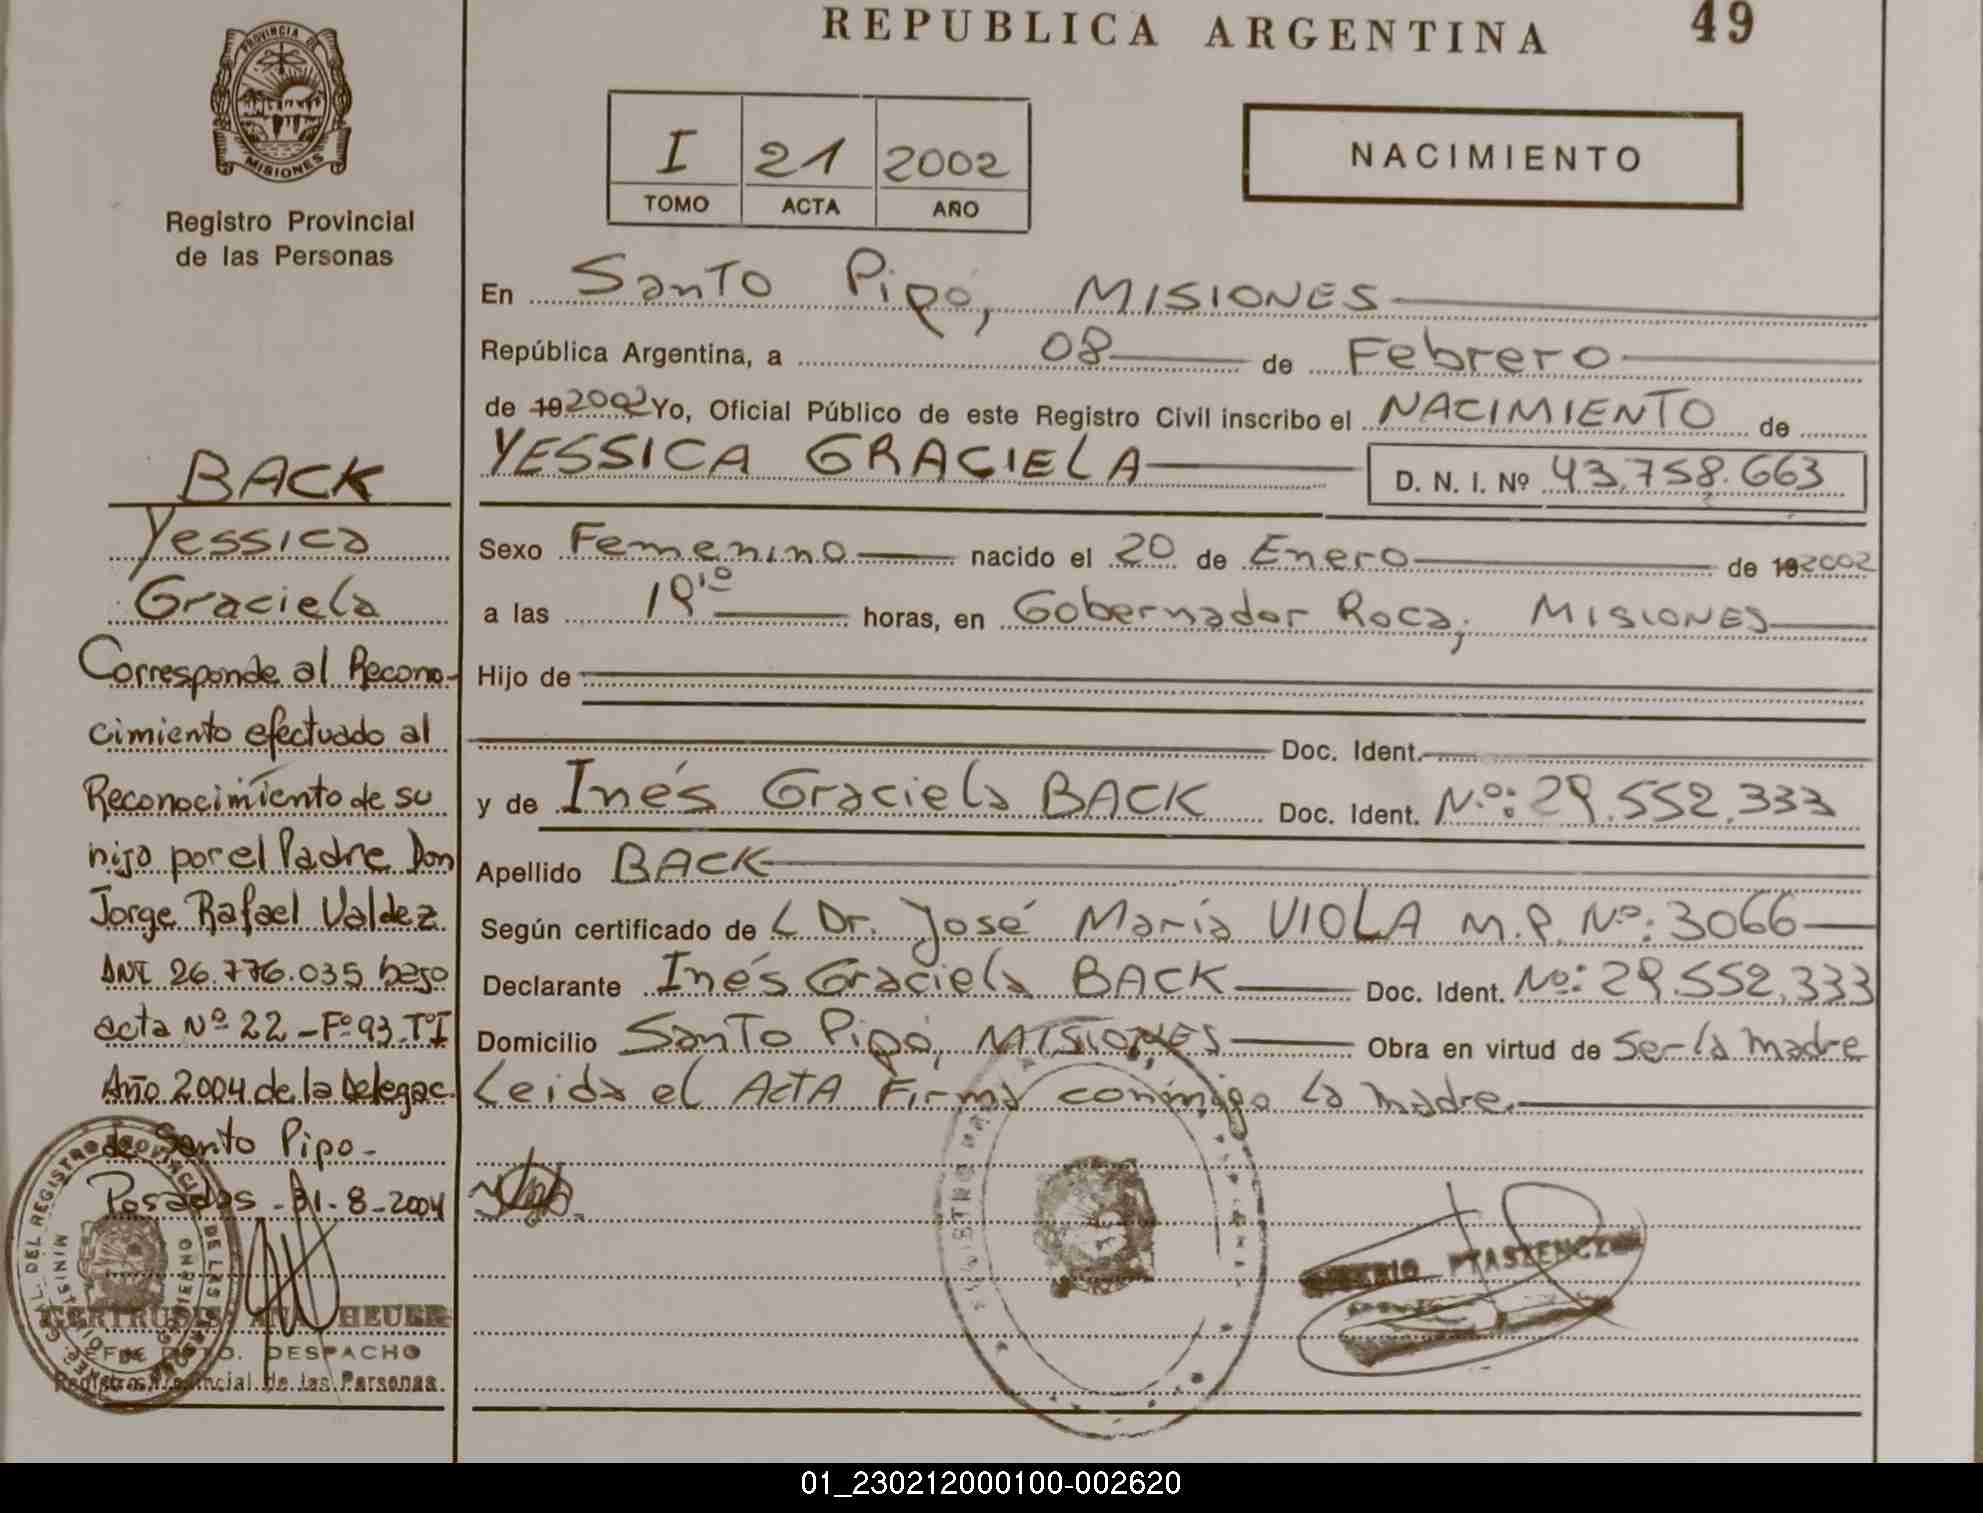 REPUBLICA ARGENTINA
49
PROVINCIA DE
MISIONES
Registro Provincial
de las Personas
I 21 2002
TOMO ACTA AÑO
NACIMIENTO
En Santo Pipó, MISIONES
República Argentina, a 08 de Febrero
de 19 2002 Yo, Oficial Público de este Registro Civil inscribo el NACIMIENTO de
YESSICA GRACIELA
D. N. I. Nº 43.758.663
Sexo Femenino nacido el 20 de Enero de 19 2002
a las 19'10 horas, en Gobernador Roca, MISIONES
Hijo de
Doc. Ident.
y de Inés Graciela BACK Doc. Ident. Nº: 29.552.333
Apellido BACK
Según certificado de L Dr. José María VIOLA M.P. Nº: 3066
Declarante Inés Graciela BACK Doc. Ident. Nº: 29.552.333
Domicilio Santo Pipó, MISIONES Obra en virtud de Ser la madre
Leida el ActA Firma conmigo la madre.
PTASZENCZUK
BACK
Yessica
Graciela
Corresponde al Recono-
cimiento efectuado al
Reconocimiento de su
hija por el Padre Don
Jorge Rafael Valdez
DNI 26.776.035 bajo
acta Nº 22 - Fº 93 - Tº I
Año 2004 de la Delegac.
de Santo Pipo -
Posadas - 31-8-2004
GERTRUDIS ANA HEUER
JEFE DPTO. DESPACHO
Registro Provincial de las Personas
01_230212000100-002620